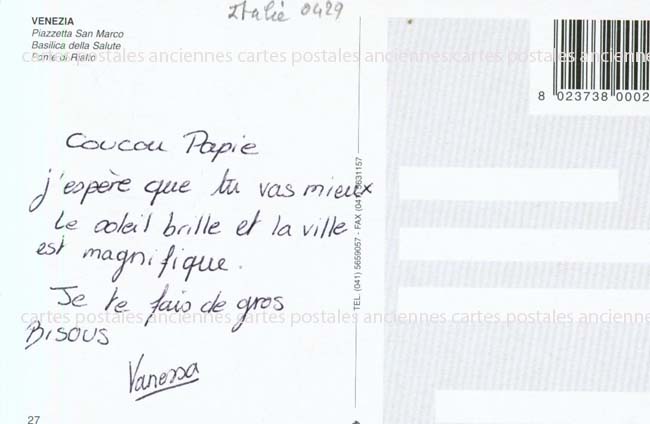 Italie 0429
VENEZIA
Piazzetta San Marco
Basilica della Salute
Ponte di Rialto
cartes postales anciennes cartes postales anciennes cartes postales anciennes
8 023738 0002
Coucou Papie
j'espère que tu vas mieux
Le soleil brille et la ville
est magnifique.
Je te fais de gros
Bisous
Vanessa
TEL. (041) 5659057 - FAX (041) 5631157
cartes postales anciennes cartes postales anciennes cartes postales anciennes
27